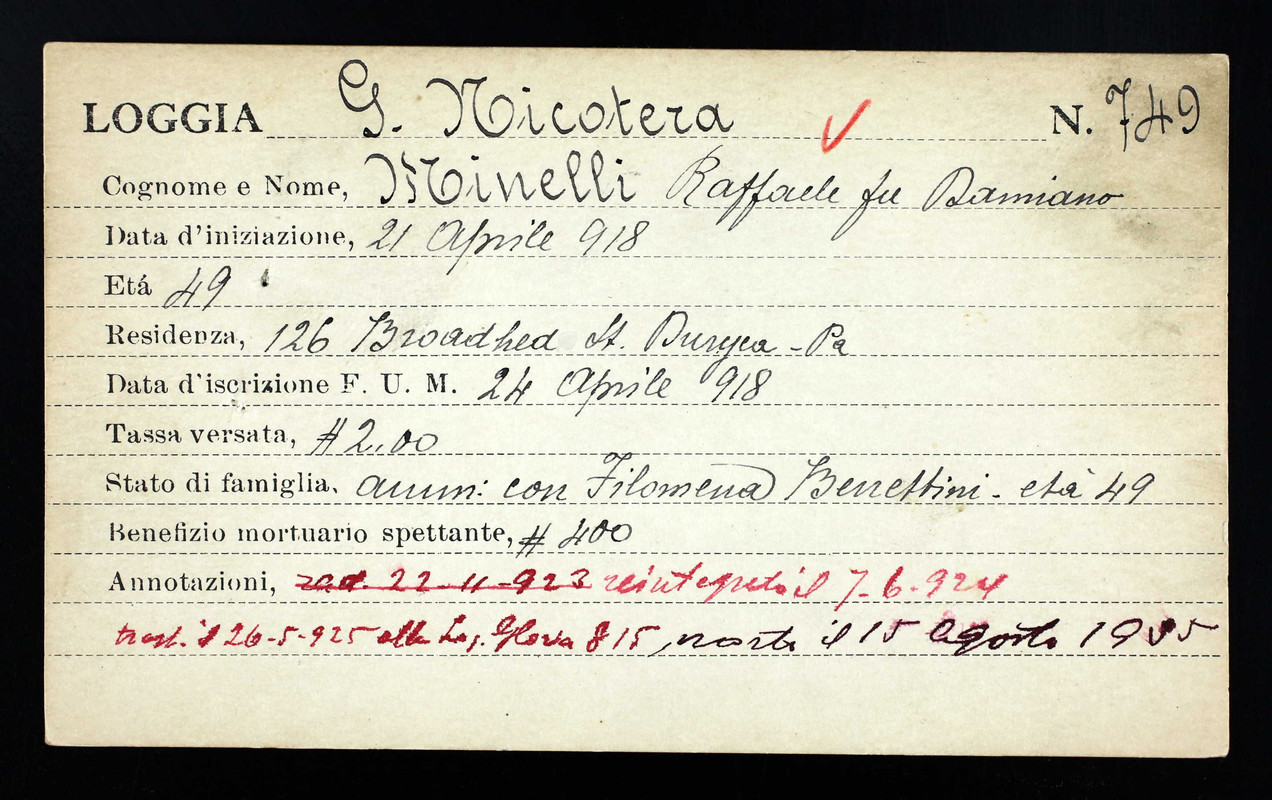 LOGGIA G. Nicotera N. 749
Cognome e Nome, Minelli Raffaele fu Damiano
Data d'iniziazione, 21 Aprile 918
Etá 49
Residenza, 126 Broadhed St. Duryea - Pa
Data d'iscrizione F. U. M. 24 Aprile 918
Tassa versata, #2.00
Stato di famiglia, amm: con Filomena Berrettini - età 49
Benefizio mortuario spettante, # 400
Annotazioni, rad 22-11-923 reintegrato il 7-6-924
trasf. il 26-5-925 alla Log. 815, morto il 15 agosto 1935